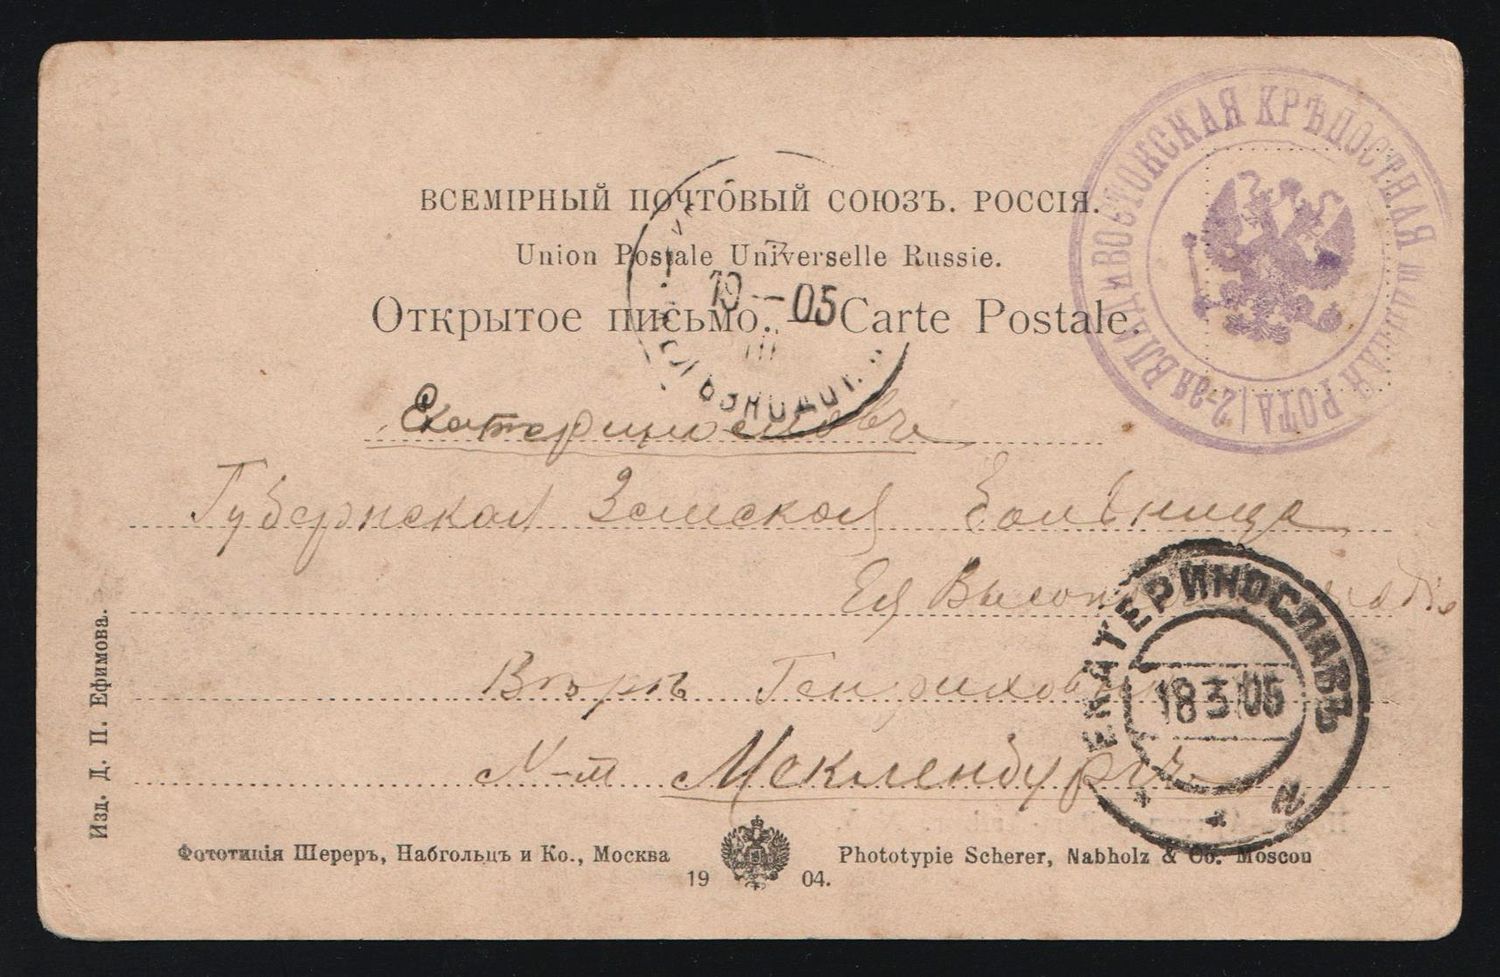 ВСЕМІРНЫЙ ПОЧТОВЫЙ СОЮЗЪ. РОССІЯ.
Union Postale Universelle Russie.
Открытое письмо. — Carte Postale.
2-ая ВЛАДИВОСТОКСКАЯ КРѢПОСТНАЯ МИННАЯ РОТА
19 — 05
III
Екатеринославъ
Губернская Земская Больница
Ея
Вѣрѣ Генриховнѣ
Мекленбургъ
ЕКАТЕРИНОСЛАВЪ
18 3 05
Изд. Д. П. Ефимова.
Фототипія Шереръ, Набгольцъ и Ко., Москва
1904.
Phototypie Scherer, Nabholz & Co. Moscou